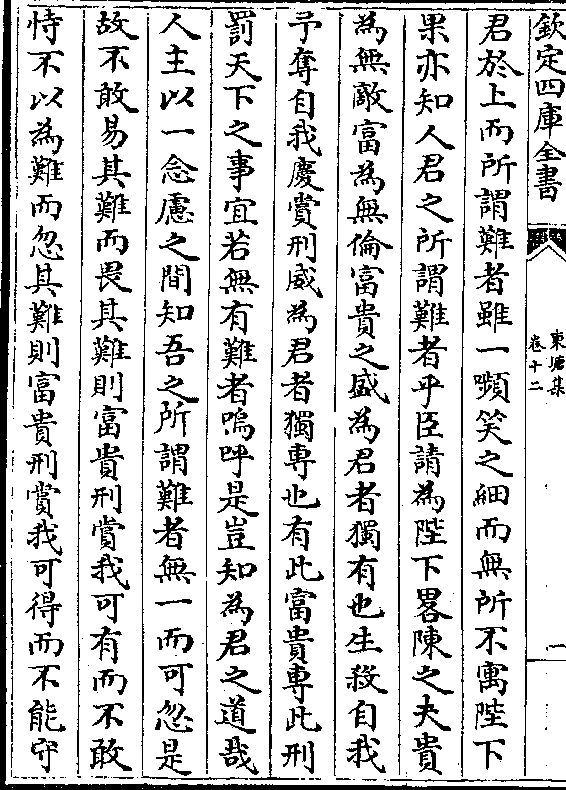 欽定四庫全書
東塘集
卷十二
一
君於上而所謂難者雖一嚬笑之細而無所不寓陛下
果亦知人君之所謂難者乎臣請為陛下畧陳之夫貴
為無敵富為無倫富貴之盛為君者獨有也生殺自我
予奪自我慶賞刑威為君者獨專也有此富貴專此刑
罰天下之事宜若無有難者嗚呼是豈知為君之道哉
人主以一念慮之間知吾之所謂難者無一而可忽是
故不敢易其難而畏其難則富貴刑賞我可有而不敢
恃不以為難而忽其難則富貴刑賞我可得而不能守